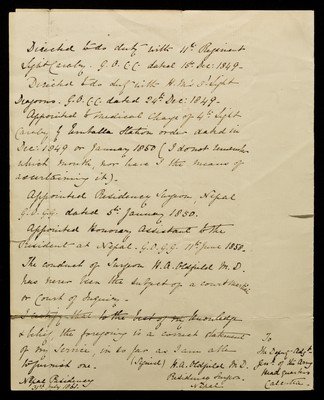 Directed to do duty with 11th Regiment
Light Cavalry. G.O.CC dated 15th Dec: 1849 -
Directed to do duty with H.M's Light
Dragoons. G.O.CC dated 24th Dec: 1849 -
Appointed to medical charge of 4th Light
Cavalry by Umballa Station order dated in
Decr: 1849 or January 1850 (I do not remember
which month, nor have I the means of
ascertaining it) -
Appointed Residency Surgeon, Nepal
G.O.G.G. dated 5th January 1850.
Appointed Honorary Assistant to the
Resident at Nepal - G.O.G.G. 11th June 1850.
The conduct of Surgeon H.A. Oldfield M.D.
has never been the subject of a court martial
or Court of Inquiry -
to the best of my knowledge
& belief the foregoing is a correct statement
of my service, in so far as I am able
to furnish one.
(Signed) H.A. Oldfield M.D.
Residency Surgeon.
Nepal
Nepal Residency
July 1861
To
The Deputy Adjt.
Genl of the Army
Head quarters
Calcutta -